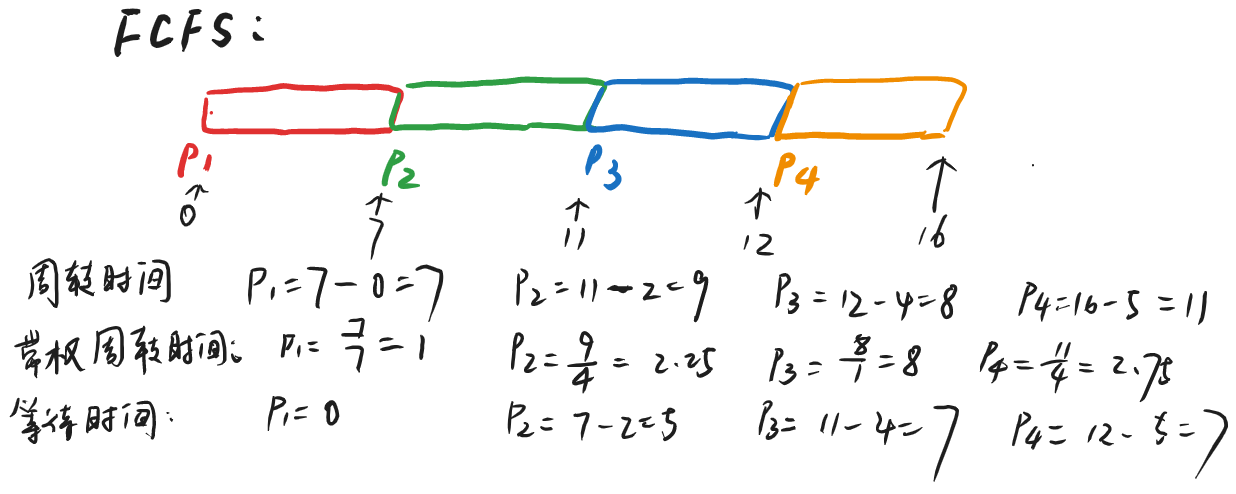 FCFS:
P1 P2 P3 P4
0 7 11 12 16
周转时间 P1=7-0=7 P2=11-2=9 P3=12-4=8 P4=16-5=11
带权周转时间: P1=7/7=1 P2=9/4=2.25 P3=8/1=8 P4=11/4=2.75
等待时间: P1=0 P2=7-2=5 P3=11-4=7 P4=12-5=7